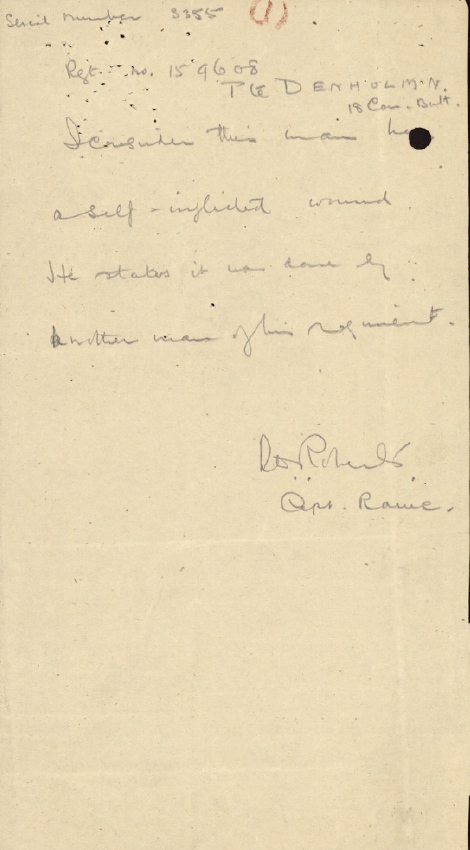 Serial number 3355 (1)
Regt. no. 159608
Pte DENHOLM. N.
18 Can. Batt.
I consider this man has
a self-inflicted wound.
He states it was done by
another man of his regiment.
Roberts
Capt. RAMC.